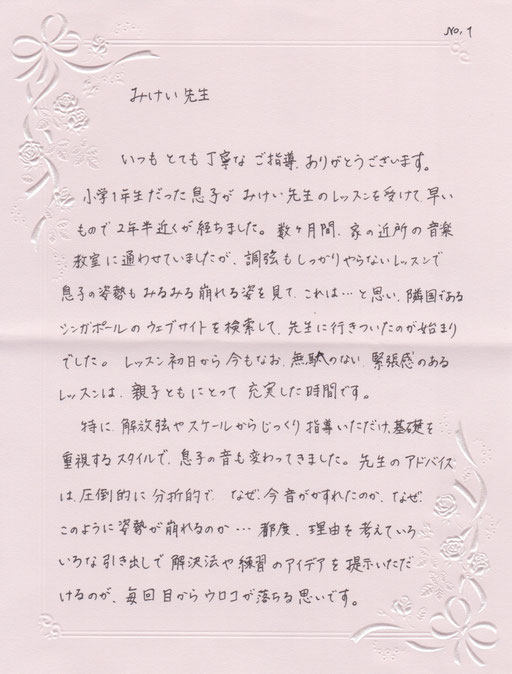 No.1
みけい先生
いつもとても丁寧なご指導、ありがとうございます。
小学1年生だった息子がみけい先生のレッスンを受けて、早い
もので2年半近くが経ちました。数ヶ月間、家の近所の音楽
教室に通わせていましたが、調弦もしっかりやらないレッスンで
息子の姿勢もみるみる崩れる姿を見て、これは…と思い、隣国である
シンガポールのウェブサイトを検索して、先生に行きついたのが始まり
でした。レッスン初日から今もなお、無駄のない、緊張感のある
レッスンは、親子ともにとって充実した時間です。
特に、解放弦やスケールからじっくり指導いただけ、基礎を
重視するスタイルで、息子の音も変わってきました。先生のアドバイス
は、圧倒的に分折的で、なぜ今音がかすれたのか、なぜ
このように姿勢が崩れるのか…都度、理由を考えていろ
いろな引き出しで解決法や練習のアイデアを提示いただ
けるのが、毎回目からウロコが落ちる思いです。